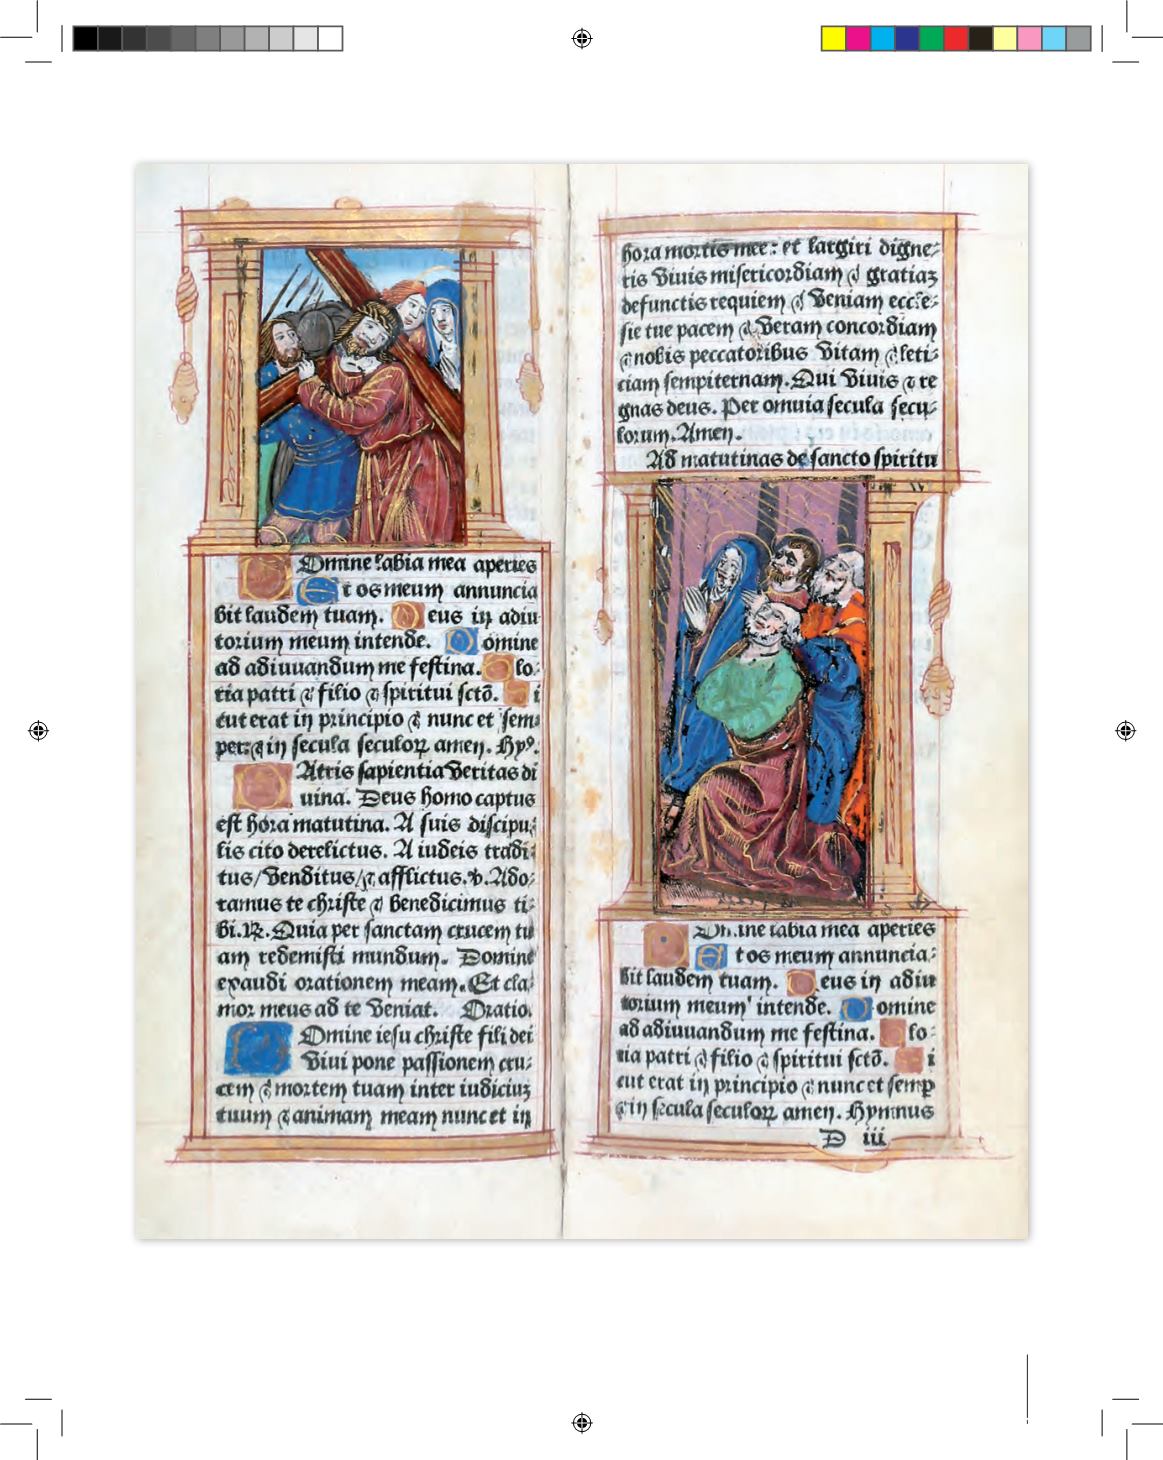 Omine labia mea aperies
Et os meum annuncia
bit laudem tuam. Deus in adiu
torium meum intende. Domine
ad adiuuandum me festina. Glo-
ria patri ⁊ filio ⁊ spiritui sctō. Si
cut erat in principio ⁊ nunc et sem-
per: ⁊ in secula seculoꝝ amen. Hyꝰ.
Patris sapientia veritas di
uina. Deus homo captus
est hora matutina. A suis discipu-
lis cito derelictus. A iudeis tradi-
tus/venditus/⁊ afflictus. ℣. Ado-
ramus te christe ⁊ benedicimus ti-
bi. ℟. Quia per sanctam crucem tu
am redemisti mundum. Domine
exaudi orationem meam. Et cla-
mor meus ad te veniat. Oratio.
Domine iesu christe fili dei
viui pone passionem cru-
cem ⁊ mortem tuam inter iudiciuꝫ
tuum ⁊ animam meam nunc et in
hora mortis mee: et largiri digne-
ris viuis misericordiam ⁊ gratiaꝫ
defunctis requiem ⁊ veniam eccle-
sie tue pacem ⁊ veram concordiam
⁊ nobis peccatoribus vitam ⁊ leti-
ciam sempiternam. Qui viuis ⁊ re
gnas deus. Per omuia secula secu-
lorum. Amen.
Ad matutinas de sancto spiritu
labia mea aperies
Et os meum annuncia-
bit laudem tuam. Deus in adiu
torium meum intende. Domine
ad adiuuandum me festina. Glo-
ria patri ⁊ filio ⁊ spiritui sctō. Si
cut erat in principio ⁊ nunc et semꝑ
⁊ in secula seculoꝝ amen. Hymnus
D iii